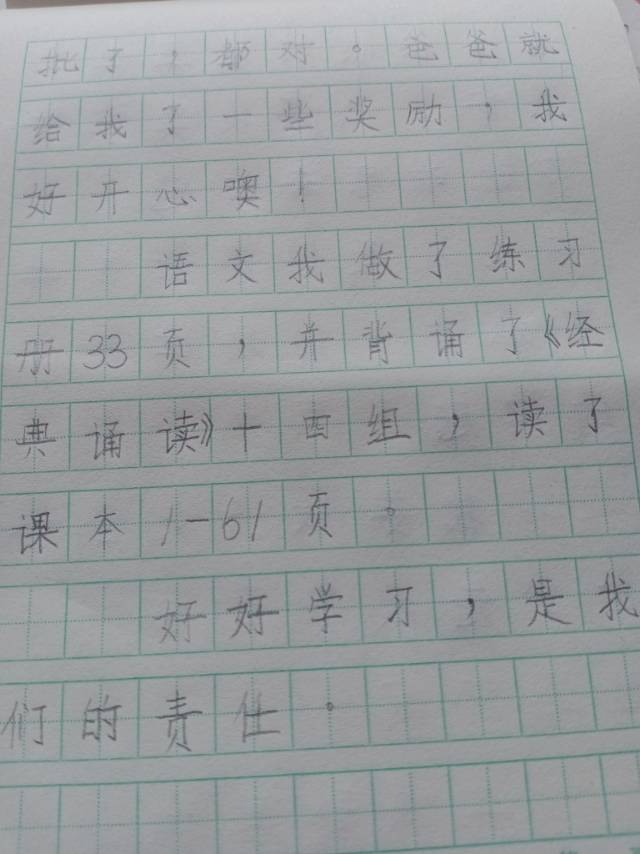 批了，都对。爸爸就
给我了一些奖励，我
好开心噢！
语文我做了练习
册33页，并背诵了《经
典诵读》十四组，读了
课本1-61页。
好好学习，是我
们的责任。